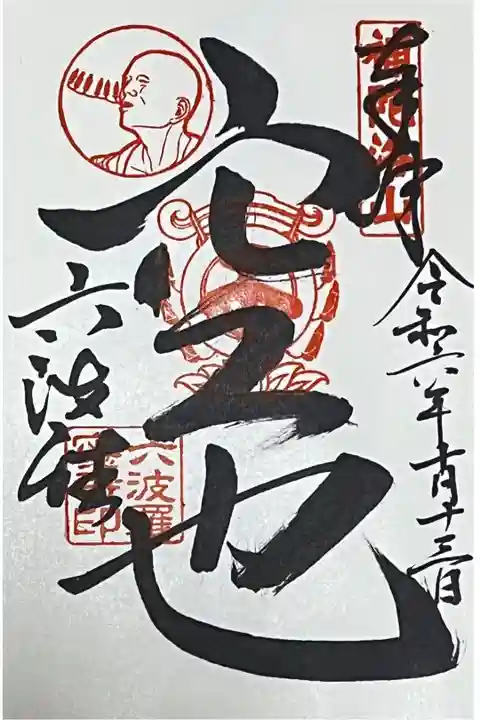 奉拝
補陀洛山
令和六年十月十三日
空也
六波羅
六波羅
蜜寺印